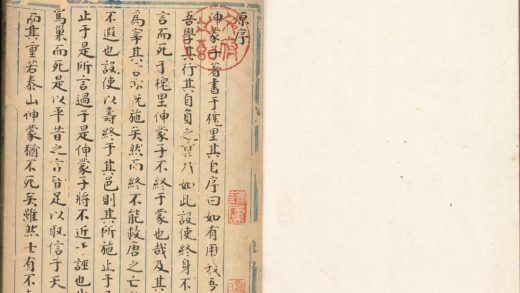 原序
伸蒙子著書于槐里其自序曰如有用我吾
吾學其行其自負之如此設使終身不
言而死于槐里伸蒙子不終于蒙也哉及其
為宰其言既施矣然而終不能救唐之亡
不遐也設使以壽終于其邑則其所施止于
止于是所言過于是伸蒙子將不近于誣也
焉巢而死是以平昔之言皆足以取信于天
而其重若泰山伸蒙猶不死矣雖然士有不